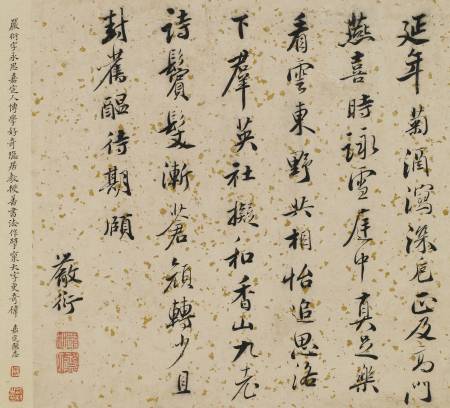 延年菊澗瀉深卮正及高門
燕喜時詠雪庭中真足樂
看雲東野共相怡追思洛
下羣英社擬和香山九老
詩鬢髮漸蒼顏轉少且
封舊醞待期頤
嚴衍
嚴衍字永思嘉定人博學好奇隱居教授善書法作擘窠大字更奇偉 嘉定縣志